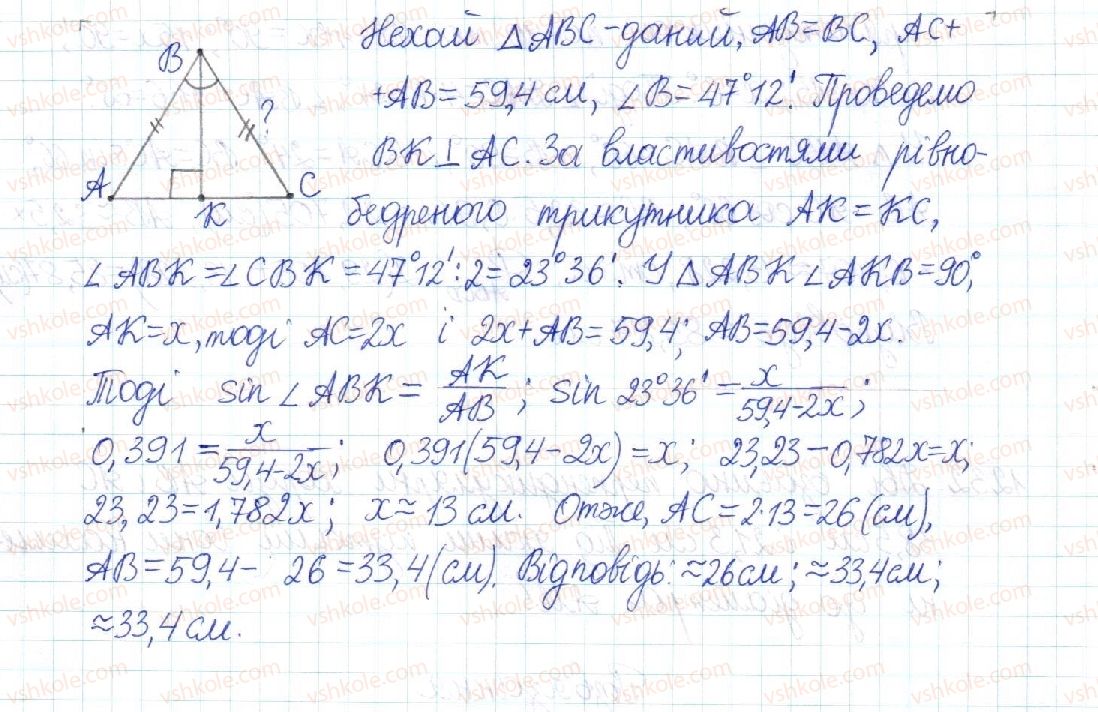 Нехай △ABC - даний, AB = BC, AC +
+ AB = 59,4 см, ∠B = 47°12'. Проведемо
BK ⊥ AC. За властивостями рівно-
бедреного трикутника AK = KC,
∠ABK = ∠CBK = 47°12' : 2 = 23°36'. У △ABK ∠AKB = 90°,
AK = x, тоді AC = 2x і 2x + AB = 59,4; AB = 59,4 - 2x.
Тоді sin ∠ABK = AK/AB; sin 23°36' = x/(59,4 - 2x);
0,391 = x/(59,4 - 2x); 0,391(59,4 - 2x) = x; 23,23 - 0,782x = x;
23,23 = 1,782x; x ≈ 13 см. Отже, AC = 2·13 = 26 (см),
AB = 59,4 - 26 = 33,4 (см). Відповідь: ≈26 см; ≈33,4 см;
≈33,4 см.
B
?
A
K
C
vshkole.com